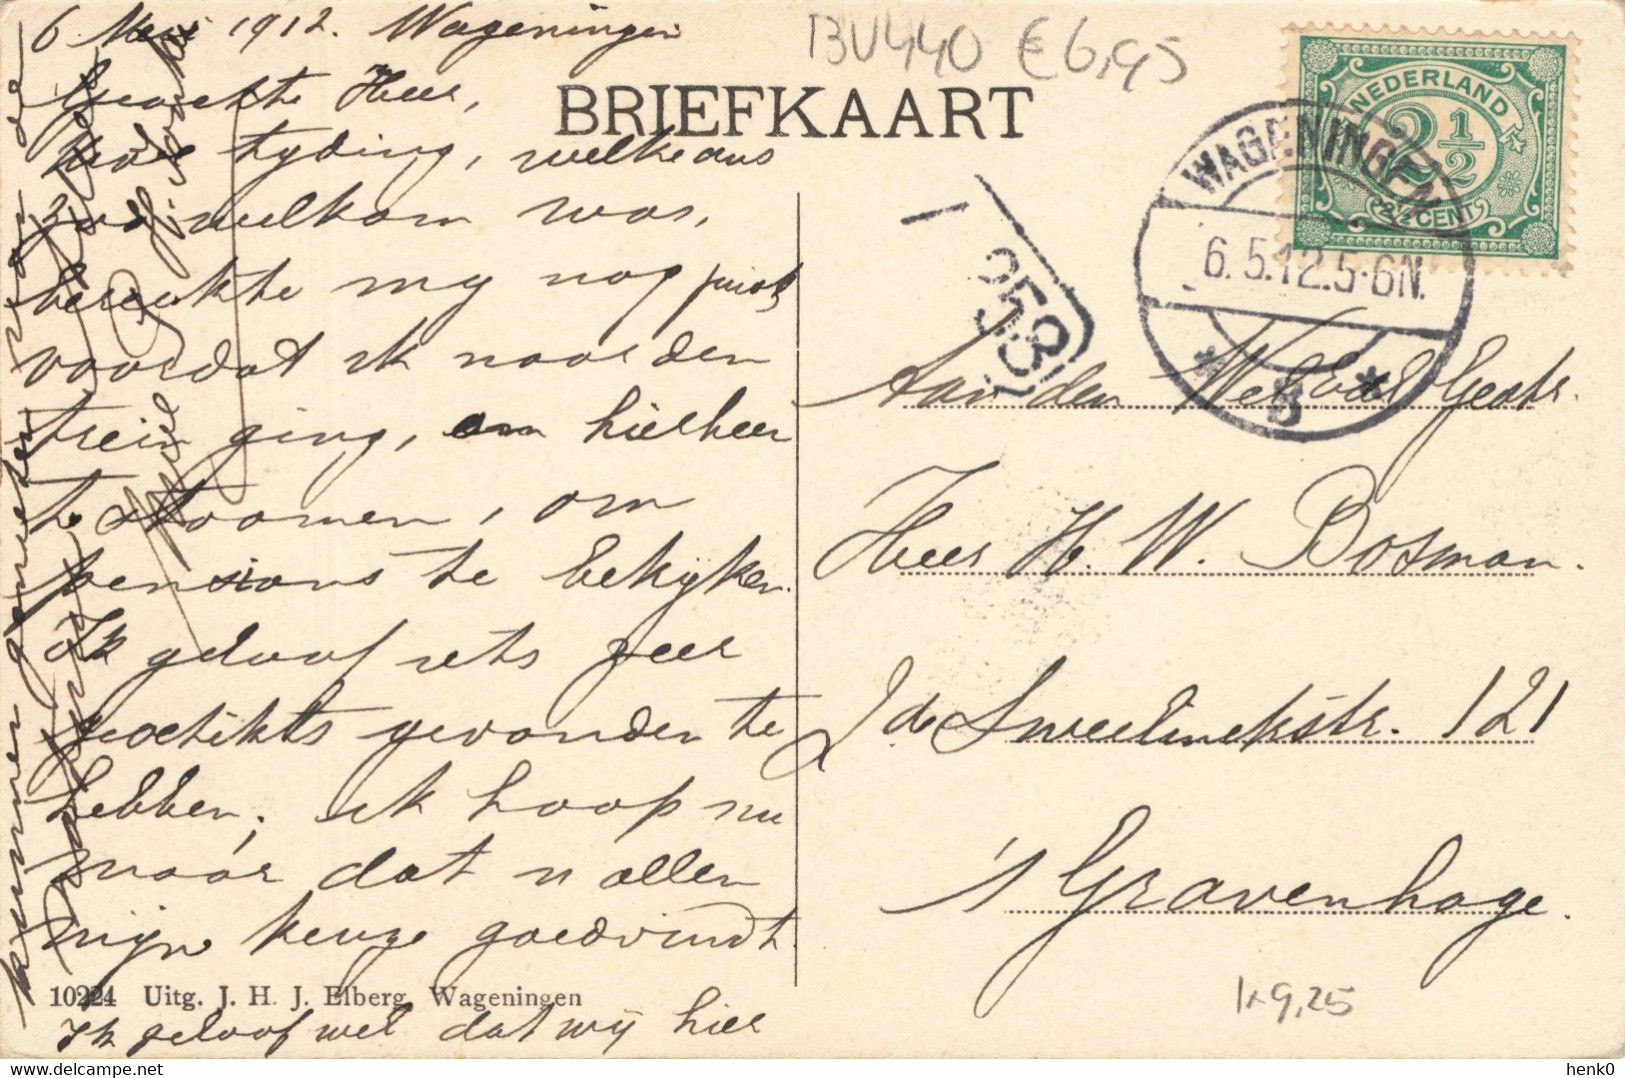 6 Mei 1912. Wageningen
Geachte Heer,
Uwe tyding, welke ons
zoo welkom was,
bereikte my nog juist
voordat ik naar den
trein ging, om hierheen
te stoomen, om
pensions te bekyken.
Ik geloof iets zeer
geschikts gevonden te
hebben; ik hoop nu
maar dat u allen
mijn keuze goedvindt.
Ik geloof wel dat wij hier
kunnen genieten van de
BRIEFKAART
BU440 € 6,95
NEDERLAND
2½
2½ CENT
WAGENINGEN
6.5.12.5-6N.
* B *
253
Aan den WelEdel Gestr.
Heer H. W. Bosman.
2de Sweelinckstr. 121
's Gravenhage.
10224 Uitg. J. H. J. Elberg, Wageningen
1x9,25
henk0